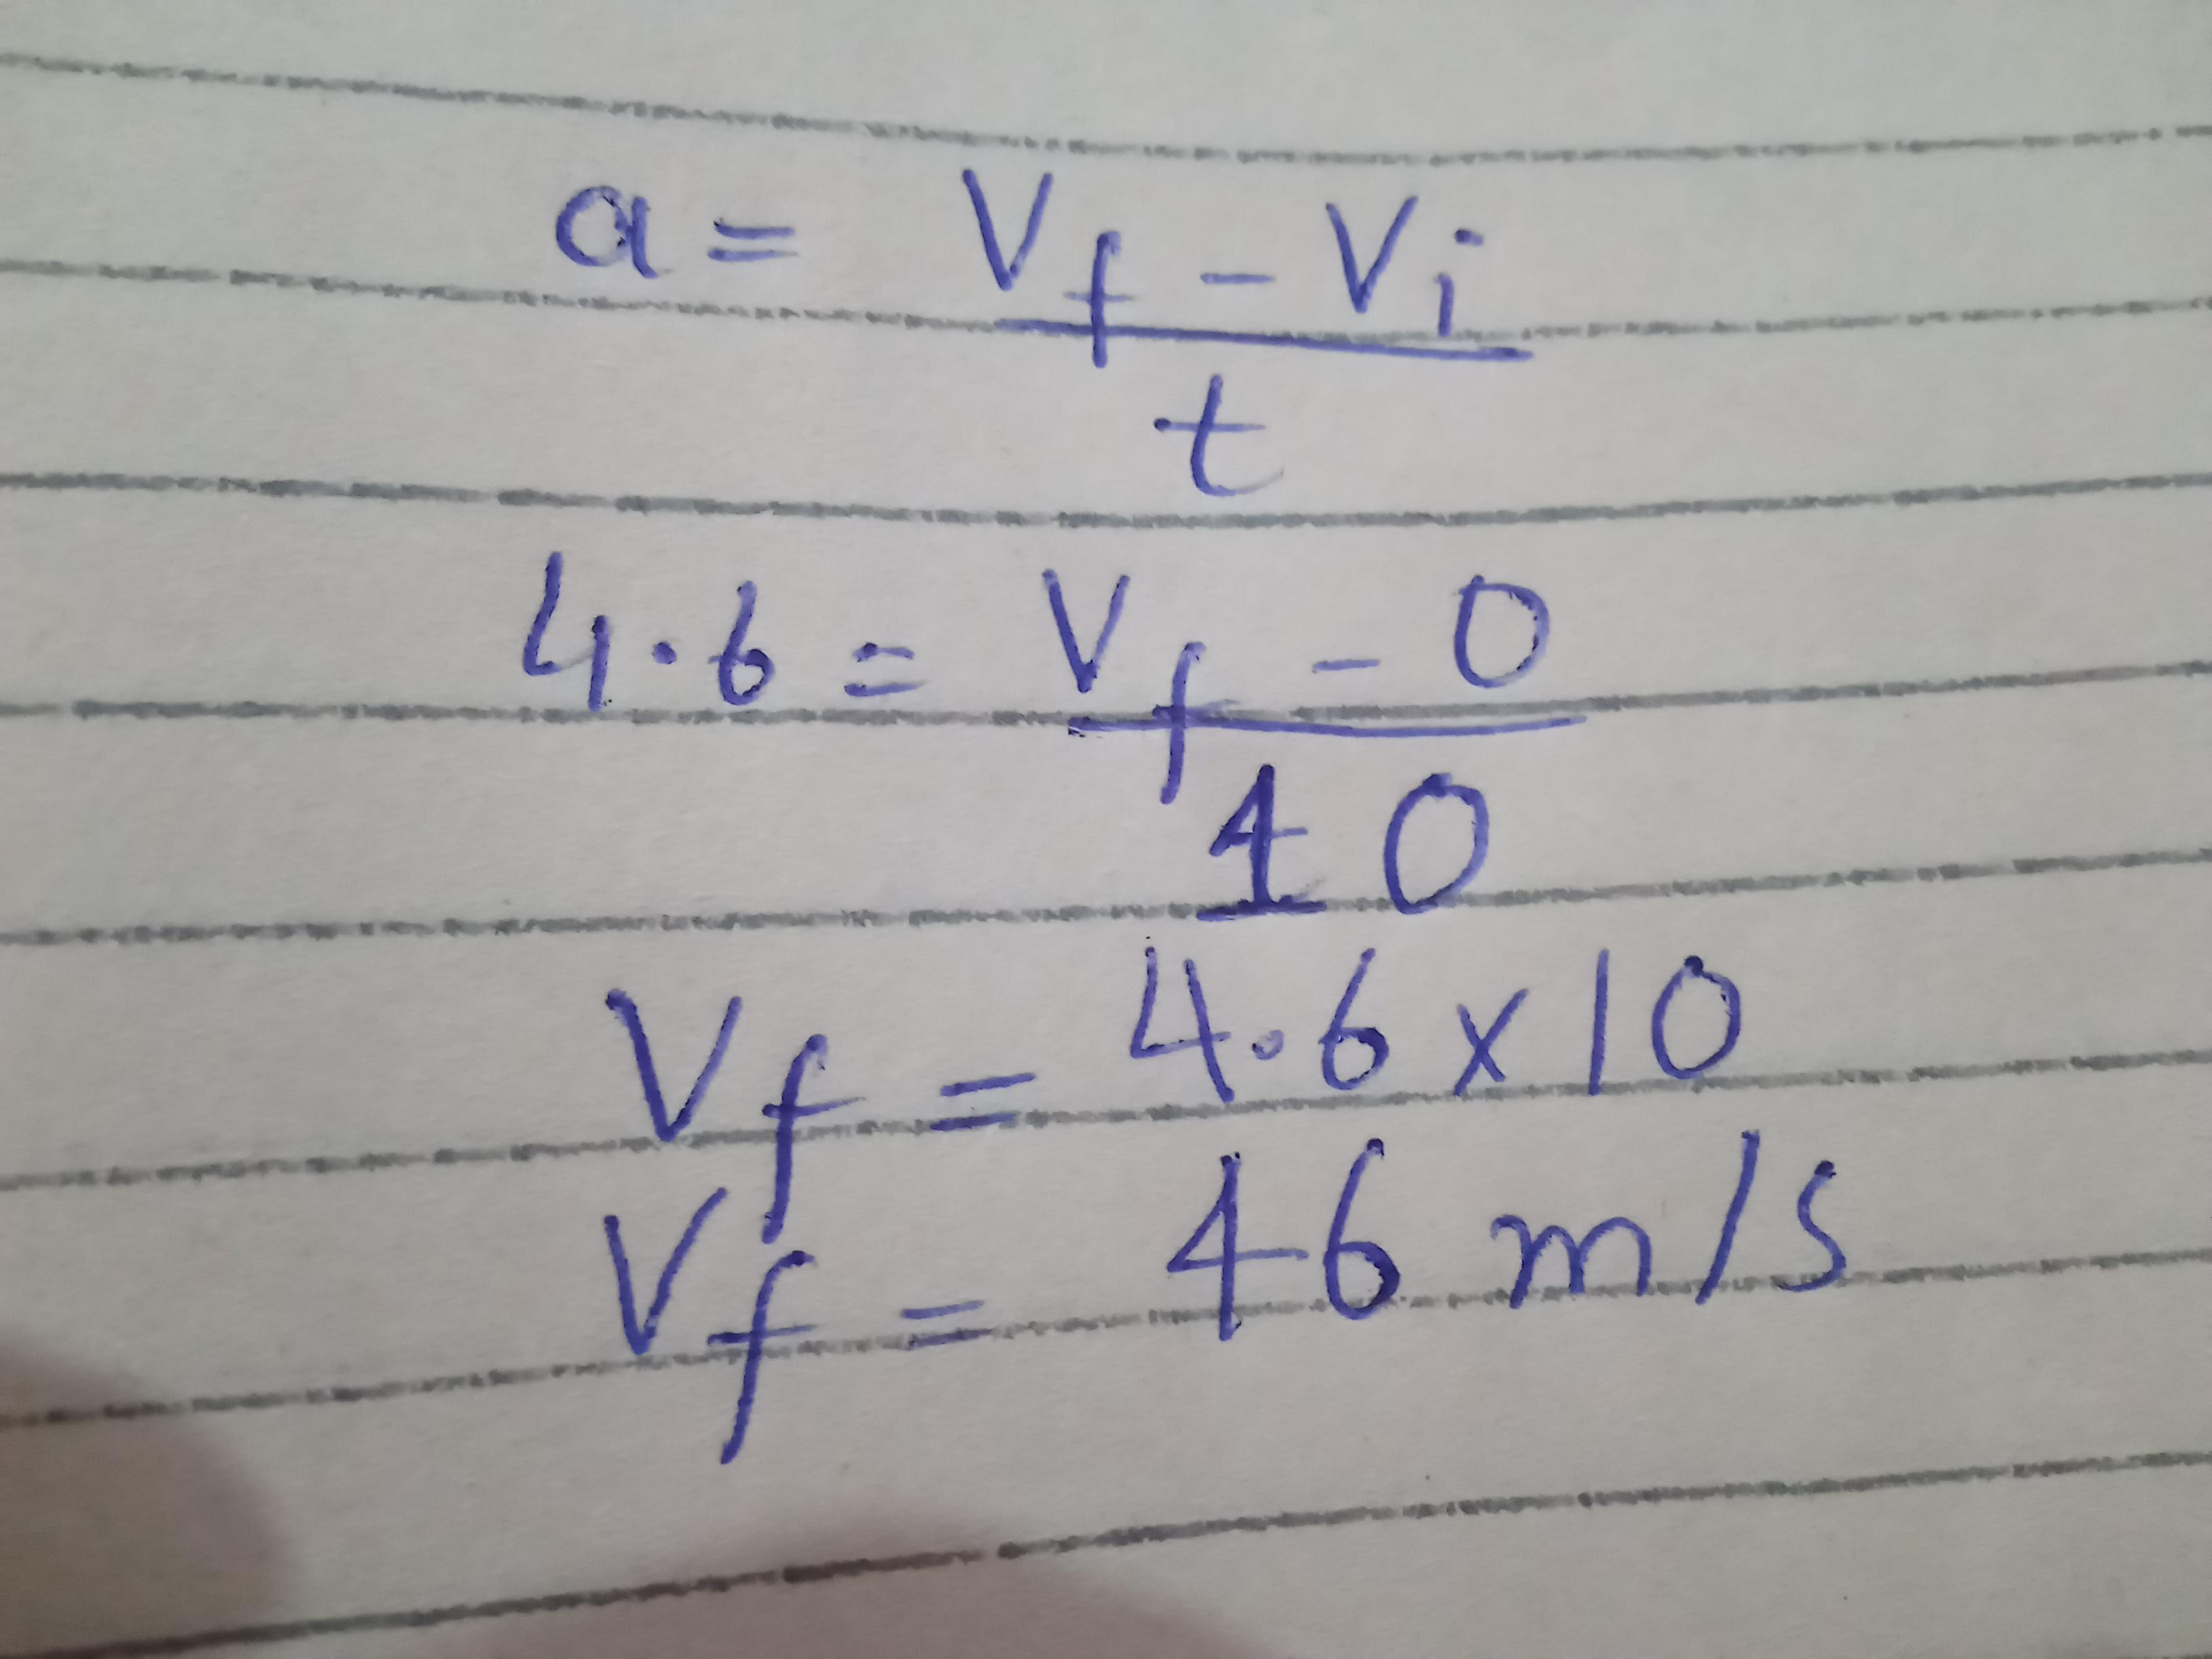 a = Vf - Vi
t
4.6 = Vf - 0
10
Vf = 4.6 x 10
Vf = 46 m/s